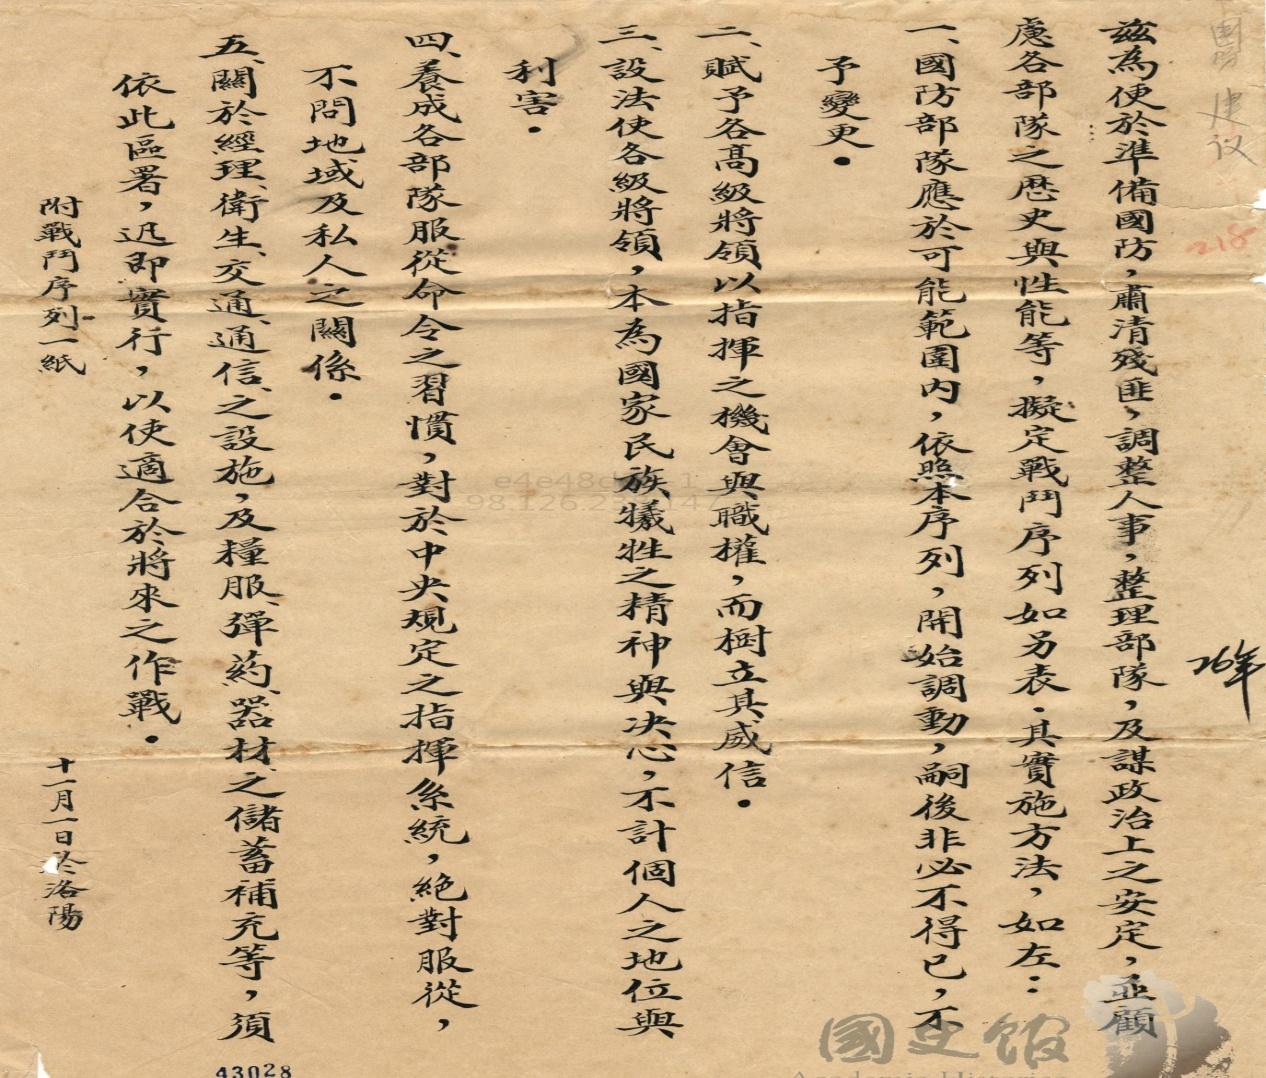 國防建议
218
26年
茲為便於準備國防，肅清殘匪，調整人事，整理部隊，及謀政治上之安定，並顧
慮各部隊之歷史與性能等，擬定戰鬥序列如另表．其實施方法，如左：
一、國防部隊應於可能範圍內，依照本序列，開始調動，嗣後非必不得已，不
予變更．
二、賦予各高級將領以指揮之機會與職權，而樹立其威信．
三、設法使各級將領，本為國家民族犧牲之精神與決心，不計個人之地位與
利害．
四、養成各部隊服從命令之習慣，對於中央規定之指揮系統，絕對服從，
不問地域及私人之關係．
五、關於經理、衛生、交通、通信、之設施，及糧服、彈药、器材、之儲蓄補充等，須
依此區署，迅即實行，以使適合於將來之作戰．
附戰鬥序列一紙
十一月一日於洛陽
43028
國史館